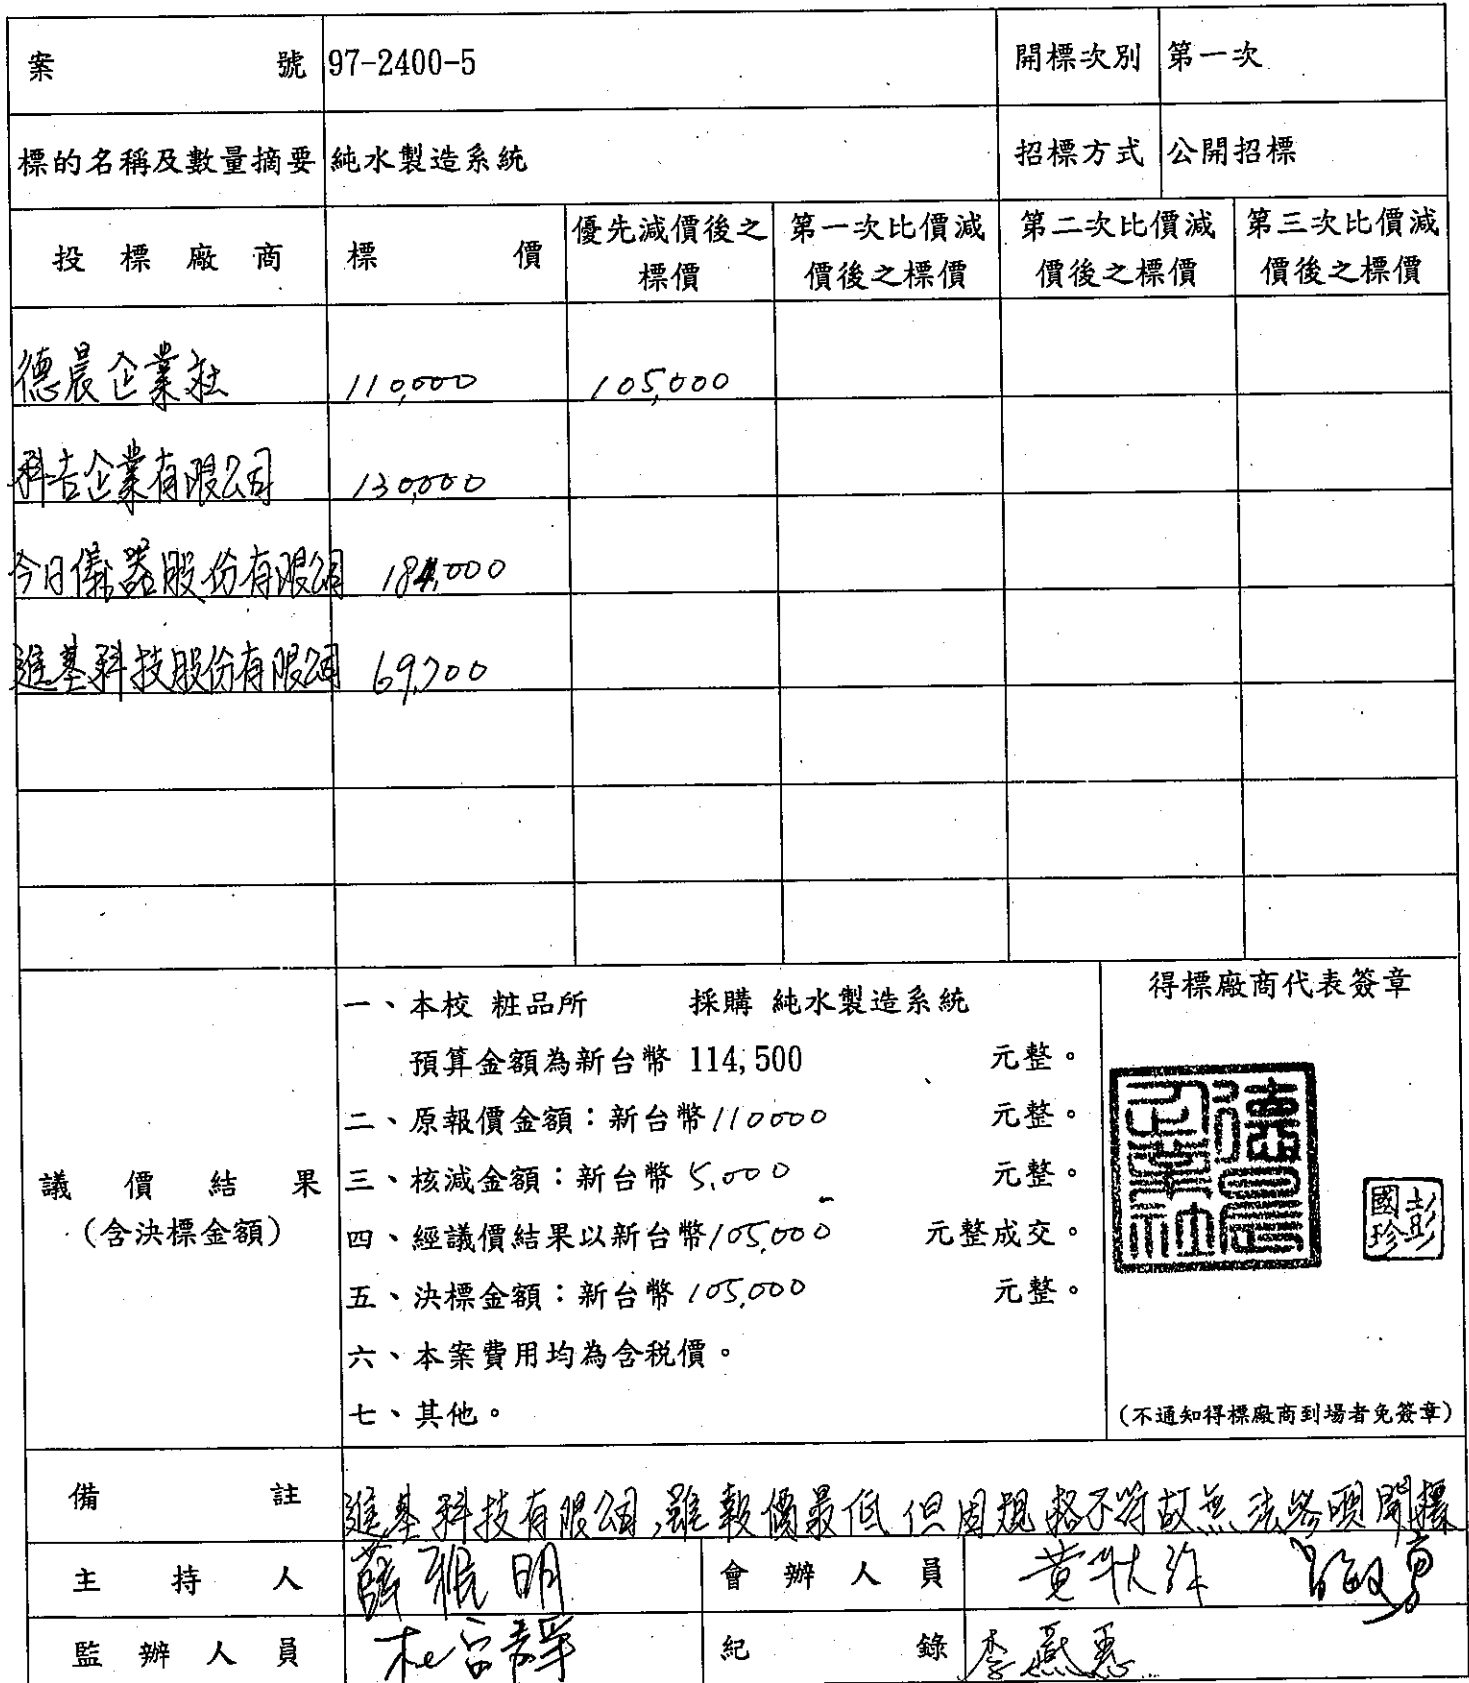 案 號 97-2400-5 開標次別 第一次
標的名稱及數量摘要 純水製造系統 招標方式 公開招標
投標廠商 標價 優先減價後之標價 第一次比價減價後之標價 第二次比價減價後之標價 第三次比價減價後之標價
德晨企業社 110,000 105,000
科吉企業有限公司 130,000
今日儀器股份有限公司 184,000
進基科技股份有限公司 69,700
議價結果
(含決標金額)
一、本校 粧品所 採購 純水製造系統
預算金額為新台幣 114,500 元整。
二、原報價金額：新台幣110000 元整。
三、核減金額：新台幣 5,000 元整。
四、經議價結果以新台幣105,000 元整成交。
五、決標金額：新台幣 105,000 元整。
六、本案費用均為含稅價。
七、其他。
得標廠商代表簽章
德晨企業社
彭國珍
(不通知得標廠商到場者免簽章)
備註 進基科技有限公司,雖報價最低但因規格不符故無法參與開標
主持人 薛雅明 會辦人員
監辦人員 紀錄 李燕惠